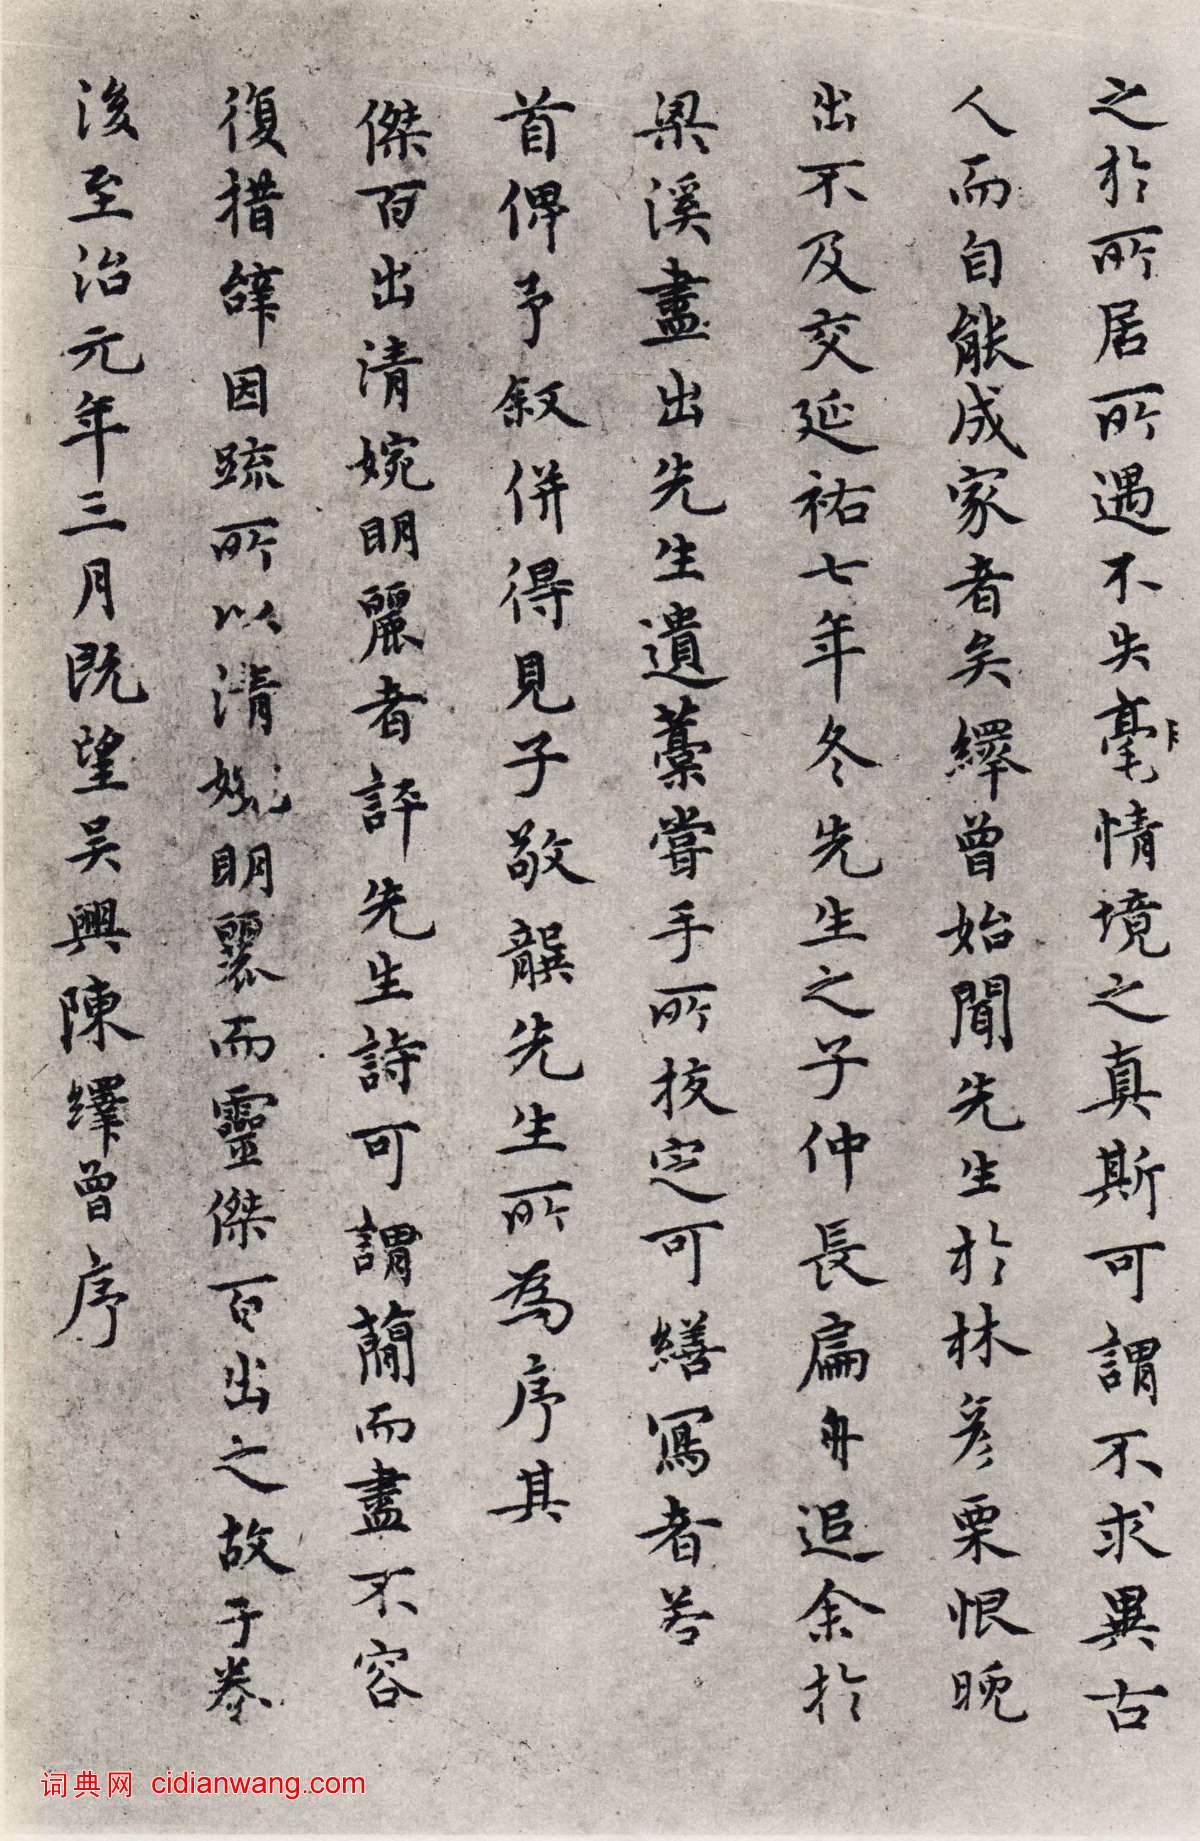 之於所居所遇不失毫情境之真斯可謂不求異古
人而自能成家者矣繹曾始聞先生於林彦栗恨晚
出不及交延祐七年冬先生之子仲長扁舟追余於
梁溪盡出先生遺藁嘗手所挍定可繕寫者若
首俾予叙併得見子敬龔先生所為序其
傑百出清婉明麗者評先生詩可謂蕳而盡不容
復措辭因疏所以清婉明麗而靈傑百出之故于卷
後至治元年三月既望吴興陳繹曾序
词典网 cidianwang.com